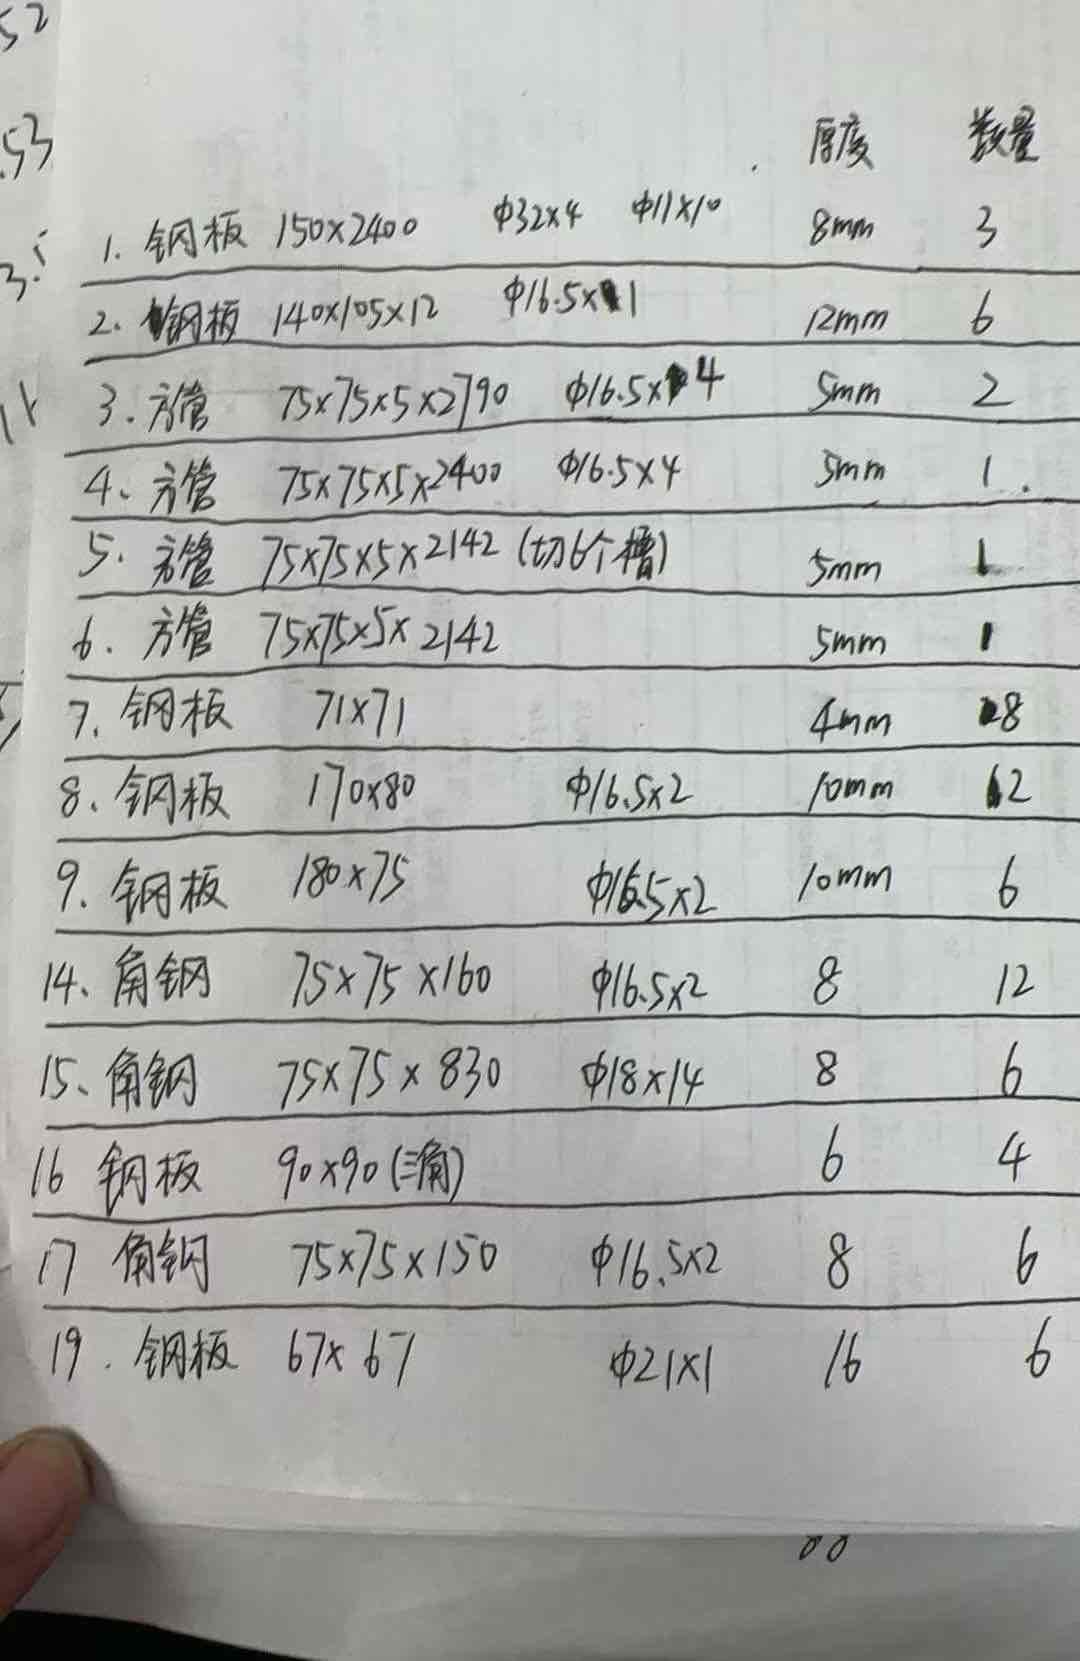 52
.53
3.5
厚度 数量
1. 钢板 150×2400 φ32×4 φ11×10 8mm 3
2. 钢板 140×105×12 φ16.5×1 12mm 6
3. 方管 75×75×5×2790 φ16.5×4 5mm 2
4、方管 75×75×5×2400 φ16.5×4 5mm 1.
5. 方管 75×75×5×2142 (切6个槽) 5mm 1
6. 方管 75×75×5×2142 5mm 1
7. 钢板 71×71 4mm 8
8、钢板 170×80 φ16.5×2 10mm 12
9. 钢板 180×75 φ16.5×2 10mm 6
14、角钢 75×75×160 φ16.5×2 8 12
15、角钢 75×75×830 φ18×14 8 6
16 钢板 90×90 (三角) 6 4
17 角钢 75×75×150 φ16.5×2 8 6
19. 钢板 67×67 φ21×1 16 6
00